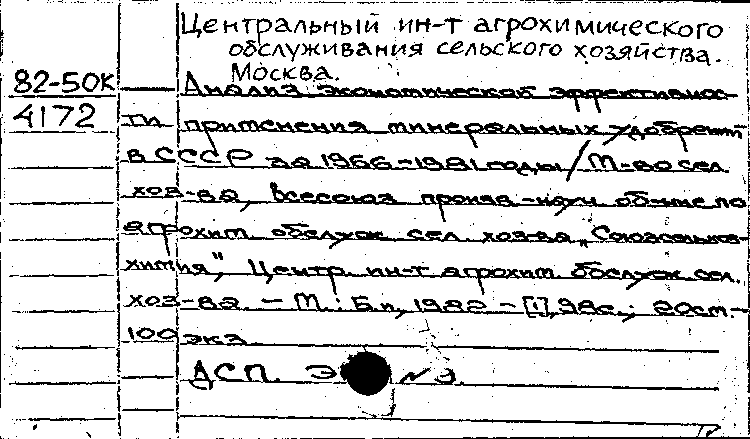 Центральный ин-т агрохимического
обслуживания сельского хозяйства.
Москва.
82-50К Анализ экономической эффективнос-
4172 ти применения минеральных удобрений
в СССР за 1966-1981 годы / М-во сел.
хоз-ва, Всесоюз произв.-науч об-ние по
агрохим. обслуж сел. хоз-ва "Союзсельхоз-
химия", Центр. ин-т агрохим обслуж сел.
хоз-ва. - М.: Б.и, 1982 - [1], 98с.; 20см.-
100 экз
ДСП. Э